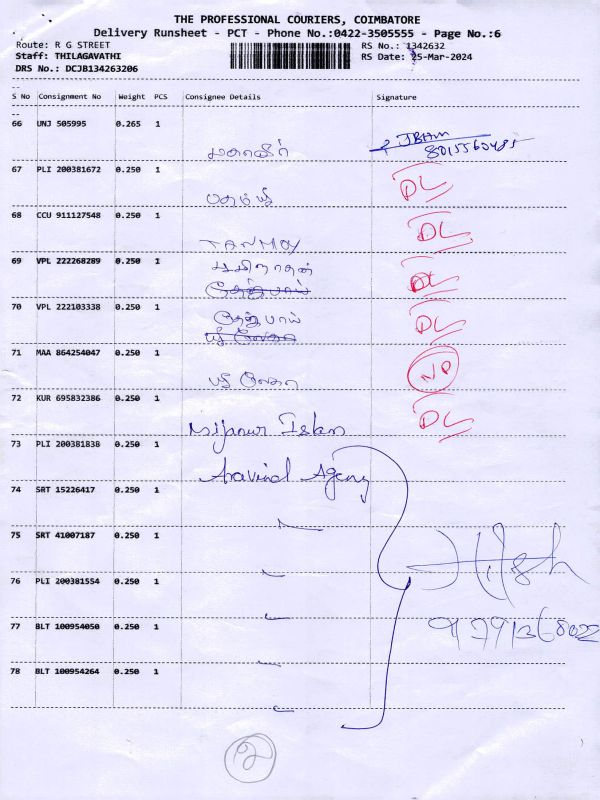 THE PROFESSIONAL COURIERS, COIMBATORE
Delivery Runsheet - PCT - Phone No.:0422-3505555 - Page No.:6
Route: R G STREET RS No.: 1342632
Staff: THILAGAVATHI RS Date: 25-Mar-2024
DRS No.: DCJB134263206
S No Consignment No Weight PCS Consignee Details Signature
66 UNJ 505995 0.265 1
67 PLI 200381672 0.250 1 DL
68 CCU 911127548 0.250 1 TANMOY DL
69 VPL 222268289 0.250 1 DL
70 VPL 222103338 0.250 1 DL
71 MAA 864254047 0.250 1 ND
72 KUR 695832386 0.250 1 Mijanur Islam DL
73 PLI 200381838 0.250 1 Aravind Agency
74 SRT 15226417 0.250 1
75 SRT 41007187 0.250 1
76 PLI 200381554 0.250 1
77 BLT 100954050 0.250 1
78 BLT 100954264 0.250 1